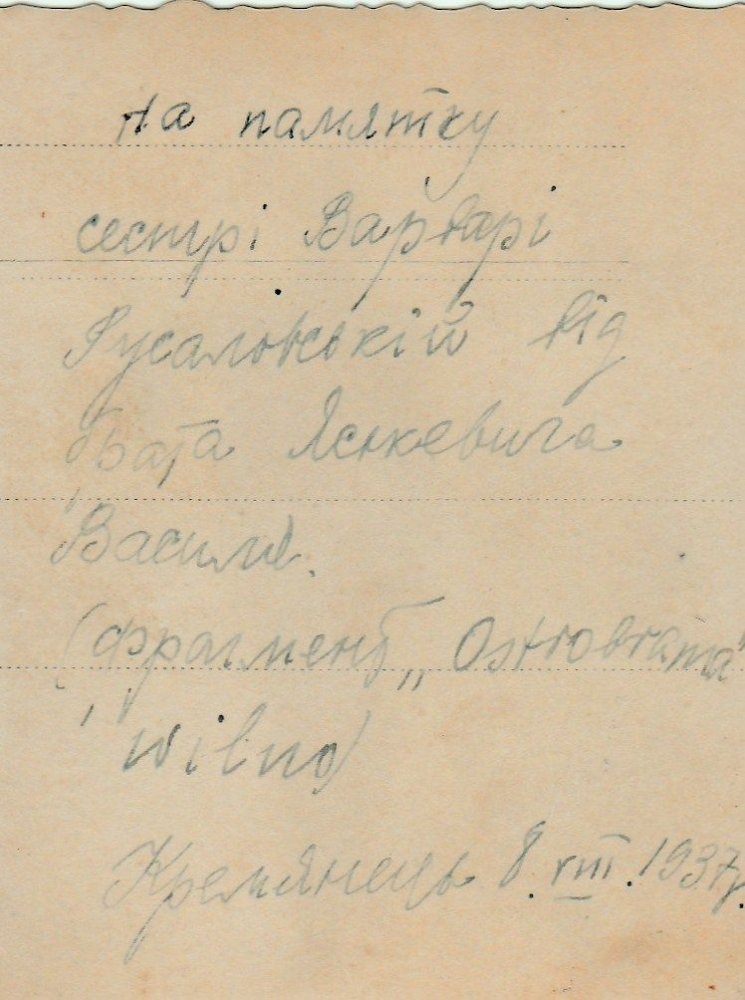 На памятку
сестрі Варварі
Русаловській від
брата Яськевича
Василя.
(фрагмент „Ostrobrama"
Wilno)
Кремянець 8.VIII.1937р.